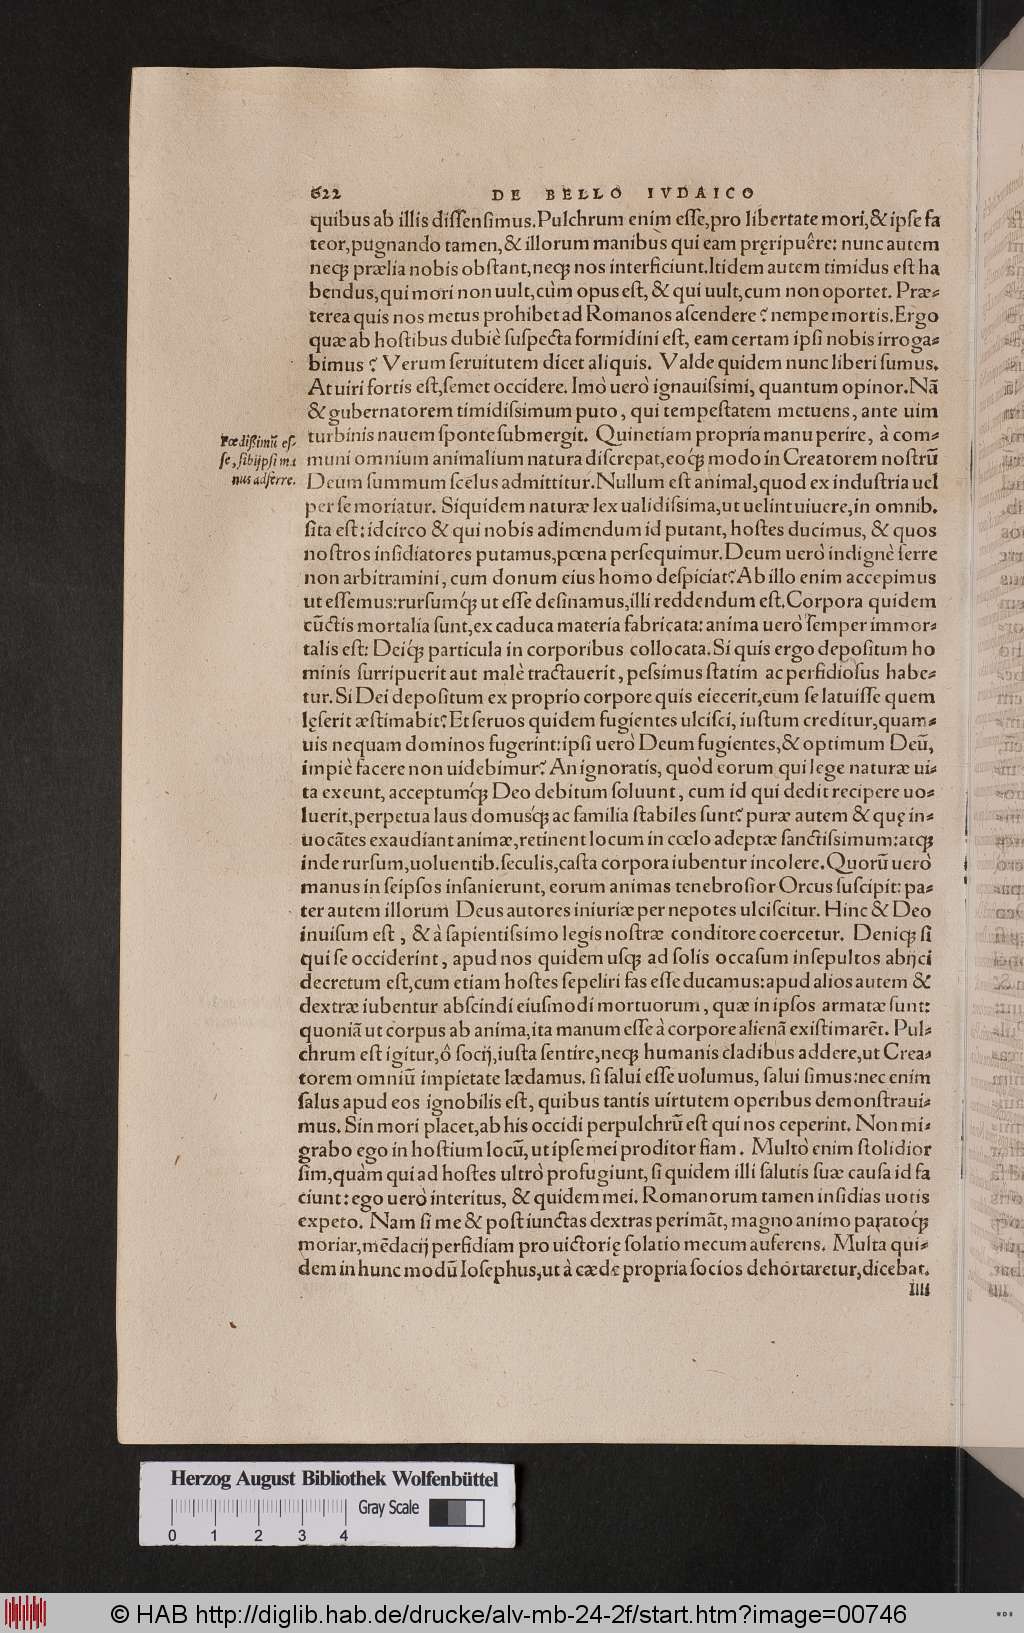 622 DE BELLO IVDAICO
quibus ab illis diſſenſimus.Pulchrum enim eſſe,pro libertate mori,& ipſe fa
teor,pugnando tamen,& illorum manibus qui eam pręripuêre: nunc autem
neq; prælia nobis obſtant,neq; nos interficiunt.Itidem autem timidus eſt ha
bendus,qui mori non uult,cùm opus eſt, & qui uult,cum non oportet. Præ-
terea quis nos metus prohibet ad Romanos aſcendere? nempe mortis.Ergo
quæ ab hoſtibus dubiè ſuſpecta formidini eſt, eam certam ipſi nobis irroga-
bimus? Verum ſeruitutem dicet aliquis. Valde quidem nunc liberi ſumus.
At uiri fortis eſt,ſemet occidere. Imò uerò ignauiſsimi, quantum opinor.Nã
& gubernatorem timidiſsimum puto, qui tempeſtatem metuens, ante uim
turbinis nauem ſponte ſubmergit. Quinetiam propria manu perire, à com-
muni omnium animalium natura diſcrepat,eoq́; modo in Creatorem noſtrũ
Deum ſummum ſcelus admittitur.Nullum eſt animal,quod ex induſtria uel
per ſe moriatur. Siquidem naturæ lex ualidiſsima,ut uelint uiuere,in omnib.
ſita eſt: idcirco & qui nobis adimendum id putant, hoſtes ducimus, & quos
noſtros inſidiatores putamus,pœna perſequimur.Deum uerò indignè ferre
non arbitramini, cum donum eius homo deſpiciat? Ab illo enim accepimus
ut eſſemus:rurſumq́; ut eſſe deſinamus,illi reddendum eſt.Corpora quidem
cũctis mortalia ſunt,ex caduca materia fabricata: anima uerò ſemper immor-
talis eſt: Deiq́; particula in corporibus collocata.Si quis ergo depoſitum ho
minis ſurripuerit aut malè tractauerit, peſsimus ſtatim ac perfidioſus habe-
tur.Si Dei depoſitum ex proprio corpore quis eiecerit,eum ſe latuiſſe quem
lęſerit æſtimabit? Et ſeruos quidem fugientes ulciſci, iuſtum creditur,quam-
uis nequam dominos fugerint:ipſi uerò Deum fugientes,& optimum Deũ,
impiè facere non uidebimur? An ignoratis, quòd eorum qui lege naturæ ui-
ta exeunt, acceptumq́; Deo debitum ſoluunt, cum id qui dedit recipere uo-
luerit,perpetua laus domusq́; ac familia ſtabiles ſunt? puræ autem & quę in-
uocãtes exaudiant animæ,retinent locum in cœlo adeptæ ſanctiſsimum:atq;
inde rurſum,uoluentib.ſeculis,caſta corpora iubentur incolere.Quorũ uerò
manus in ſeipſos inſanierunt, eorum animas tenebroſior Orcus ſuſcipit: pa-
ter autem illorum Deus autores iniuriæ per nepotes ulciſcitur. Hinc & Deo
inuiſum eſt, & à ſapientiſsimo legis noſtræ conditore coercetur. Deniq; ſi
qui ſe occiderint, apud nos quidem uſq; ad ſolis occaſum inſepultos abijci
decretum eſt,cum etiam hoſtes ſepeliri fas eſſe ducamus:apud alios autem &
dextræ iubentur abſcindi eiuſmodi mortuorum, quæ in ipſos armatæ ſunt:
quoniã ut corpus ab anima,ita manum eſſe à corpore alienã exiſtimarẽt. Pul-
chrum eſt igitur,ô ſocij,iuſta ſentire,neq; humanis cladibus addere,ut Crea-
torem omniũ impietate lædamus. ſi ſalui eſſe uolumus, ſalui ſimus:nec enim
ſalus apud eos ignobilis eſt, quibus tantis uirtutem operibus demonſtraui-
mus. Sin mori placet,ab his occidi perpulchrũ eſt qui nos ceperint. Non mi-
grabo ego in hoſtium locũ, ut ipſe mei proditor fiam. Multò enim ſtolidior
ſim,quàm qui ad hoſtes ultrò profugiunt, ſi quidem illi ſalutis ſuæ cauſa id fa
ciunt: ego uerò interitus, & quidem mei. Romanorum tamen inſidias uotis
expeto. Nam ſi me & poſt iunctas dextras perimãt, magno animo paratoq́;
moriar,mẽdacij perfidiam pro uictorię ſolatio mecum auferens. Multa qui-
dem in hunc modũ Ioſephus,ut à cæde propria ſocios dehortaretur,dicebat.
IIII
Fœdiſſimũ eſ-
ſe, ſibijpſi ma
nus adferre.
Herzog August Bibliothek Wolfenbüttel
Gray Scale
0 1 2 3 4
© HAB http://diglib.hab.de/drucke/alv-mb-24-2f/start.htm?image=00746